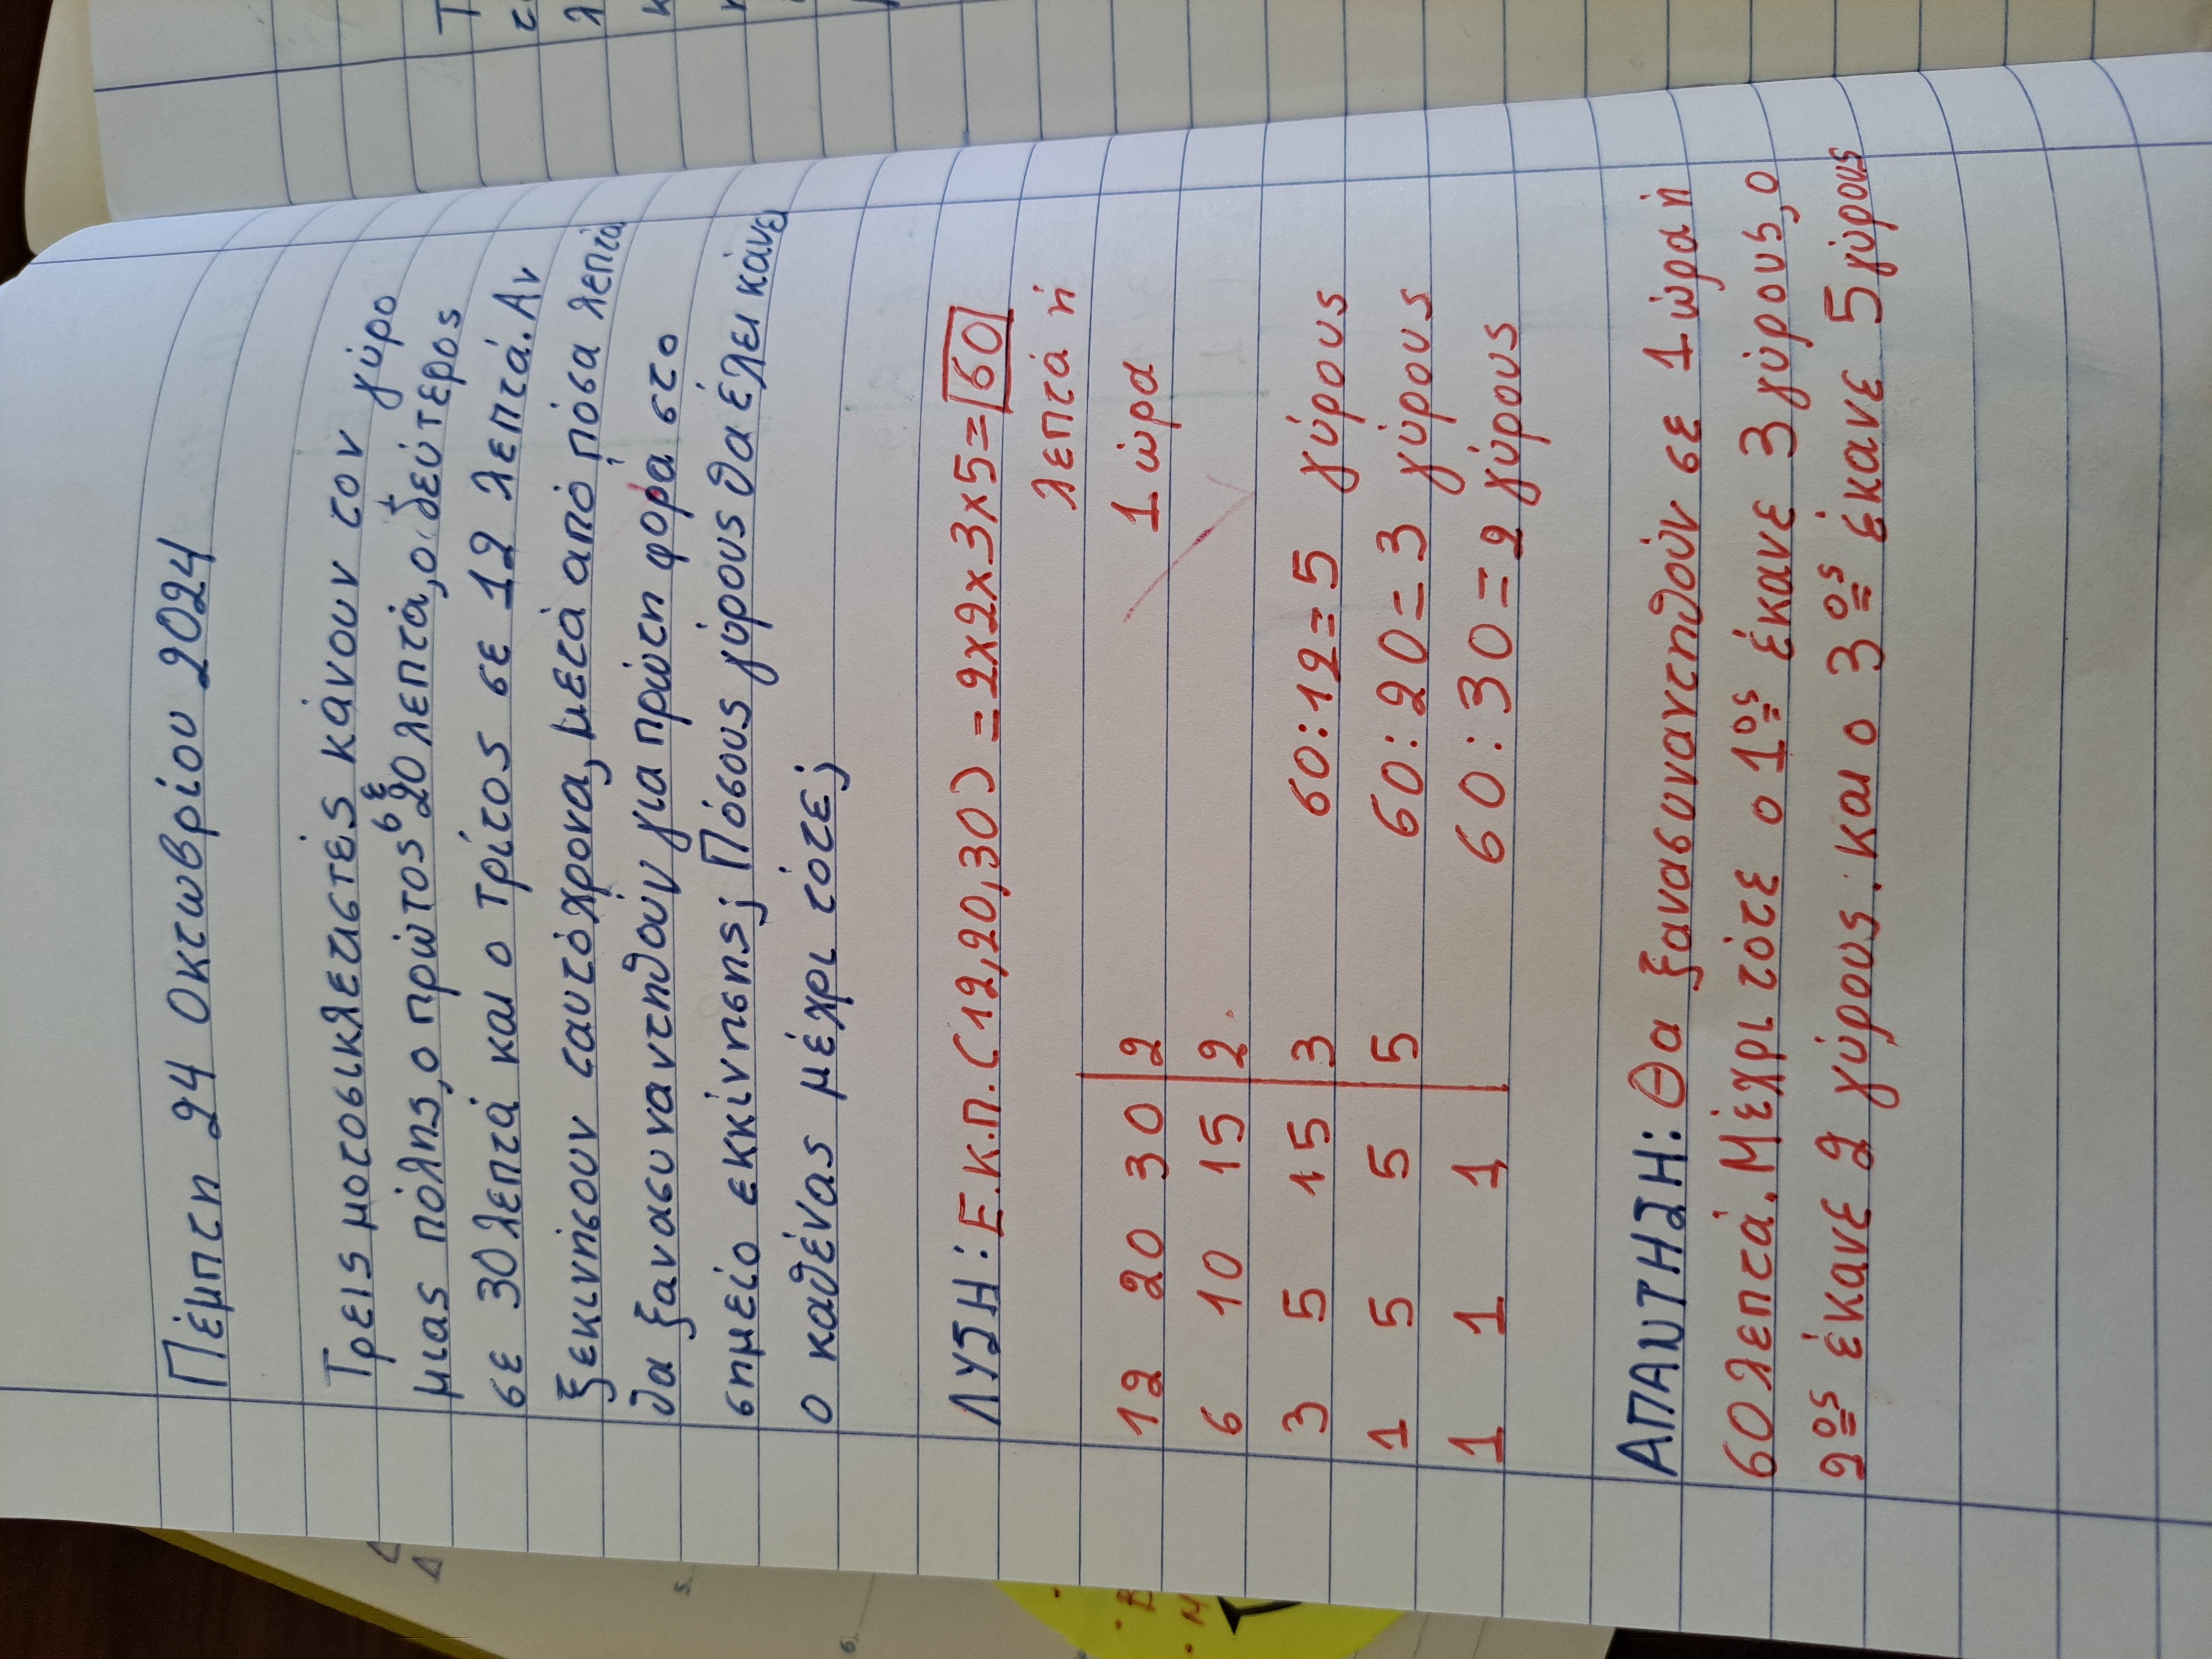 Πέμπτη 24 Οκτωβρίου 2024
Τρεις μοτοσικλετιστές κάνουν τον γύρο
μιας πόλης, ο πρώτος σε 20 λεπτά, ο δεύτερος
σε 30 λεπτά και ο τρίτος σε 12 λεπτά. Αν
ξεκινήσουν ταυτόχρονα, μετά από πόσα λεπτά
θα ξανασυναντηθούν για πρώτη φορά στο
σημείο εκκίνησης; Πόσους γύρους θα έχει κάνει
ο καθένας μέχρι τότε;
ΛΥΣΗ: Ε.Κ.Π. (12,20,30) = 2×2×3×5= 60
λεπτά ή
1 ώρα
12 20 30 | 2
6 10 15 | 2
3 5 15 | 3
1 5 5 | 5
1 1 1
60:12=5 γύρους
60:20=3 γύρους
60:30=2 γύρους
ΑΠΑΝΤΗΣΗ: Θα ξανασυναντηθούν σε 1 ώρα ή
60 λεπτά. Μέχρι τότε ο 1ος έκανε 3 γύρους, ο
2ος έκανε 2 γύρους. και ο 3ος έκανε 5 γύρους